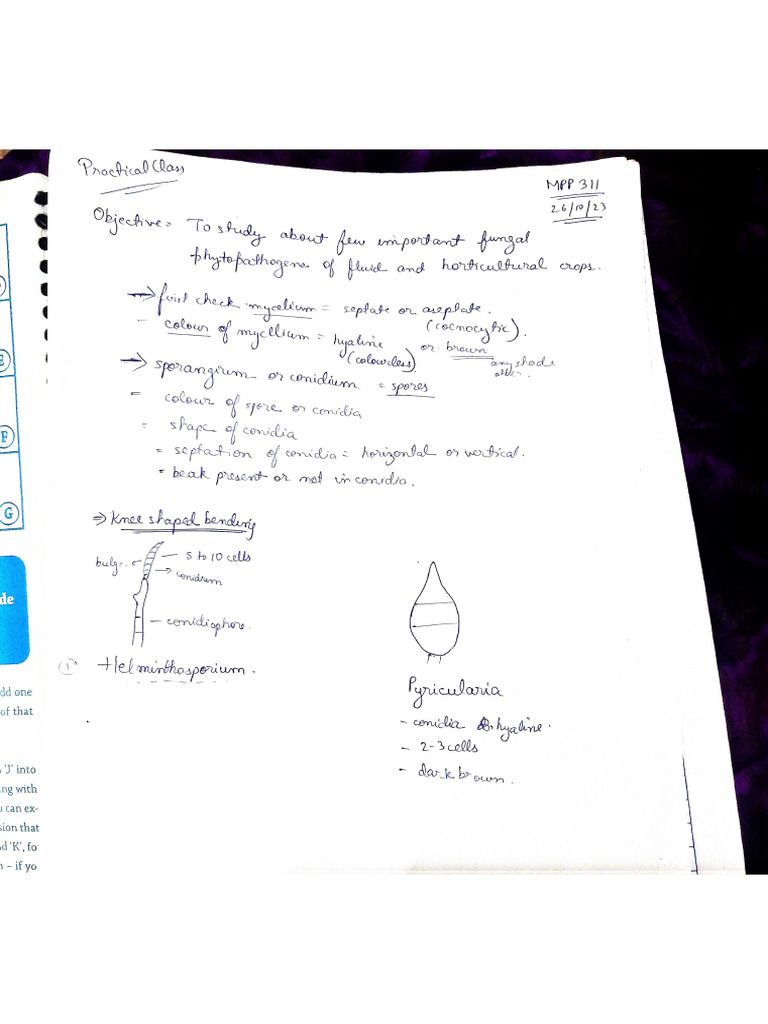 Practical Class
MPP 311
26/10/23
Objective = To study about few important fungal
phytopathogens of fluid and horticultural crops.
→ first check mycelium = septate or aseptate.
(coenocytic).
- colour of mycllium = hyaline or brown
(colourless) any shade
→ sporangium or conidium = spores
= colour of spore or conidia
= shape of conidia
= septation of conidia = horizontal or vertical.
= beak present or not in conidia.
⇒ Knee shaped bending
bulg.. ← - 5 to 10 cells
→ conidium
- conidiophore.
1) Helminthosporium.
Pyricularia
- conidia hyaline.
- 2-3 cells
- dark brown.
E
F
G
de
dd one
of that
'J' into
ng with
u can ex-
sion that
d 'K', fo
n – if yo